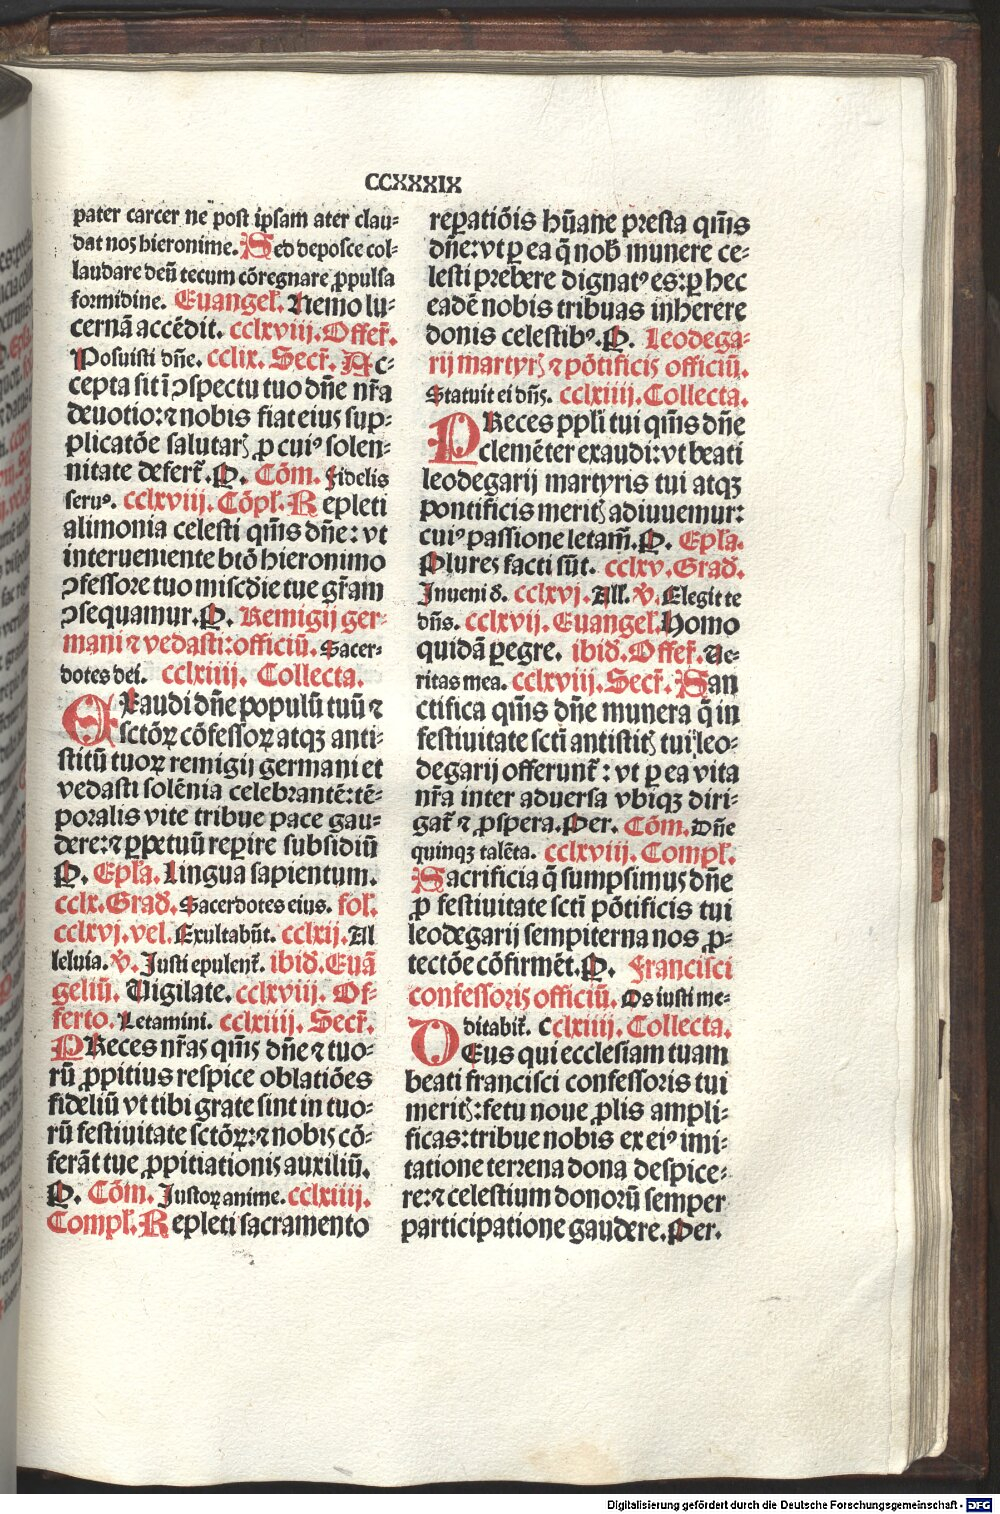 CCXXXIX
pater carcer ne post ipsam ater clau-
dat nos hieronime. Sed deposce col-
laudare deū tecum cōregnare ꝓpulsa
formidine. Euangel̄. Nemo lu-
cernā accēdit. cclxviij. Offer̄.
Posuisti dn̄e. cclix. Secr̄. Ac-
cepta sit ī ꝯspectu tuo dn̄e nr̄a
deuotio: ⁊ nobis fiat eius sup-
plicatōe salutarꝭ ꝓ cuiꝰ solen-
nitate defert̄. P. Cōm. Fidelis
seruꝰ. cclxviij. Cōpl̄. Repleti
alimonia celesti qm̄s dn̄e: vt
interueniente btō hieronimo
ꝯfessore tuo miscd̄ie tue gr̄am
ꝯsequamur. P. Remigij ger-
mani ⁊ vedasti: officiū. Sacer-
dotes dei. cclxiiij. Collecta.
EXaudi dn̄e populū tuū ⁊
sctōꝝ cōfessoꝝ atqꝫ anti-
stitū tuoꝝ remigij germani et
vedasti solēnia celebrantē: tē-
poralis vite tribue pace gau-
dere: ⁊ ꝑpetuū reꝑire subsidiū
P. Epl̄a. Lingua sapientum.
cclx. Grad̄. Sacerdotes eius. fol.
cclxvj. vel. Exultabūt. cclxij. Al
leluia. ℣. Justi epulent̄. ibid̄. Euā
geliū. Vigilate. cclxviij. Of-
ferto. Letamini. cclxiiij. Secr̄.
PReces nr̄as qm̄s dn̄e ⁊ tuo-
rū ꝓpitius respice oblatiōes
fideliū vt tibi grate sint in tuo-
rū festiuitate sctōꝝ: ⁊ nobis cō-
ferāt tue ꝓpitiationis auxiliū.
P. Cōm. Justoꝝ anime. cclxiiij.
Compl̄. Repleti sacramento
reꝑatiōis hūane presta qm̄s
dn̄e: vt ꝑ ea q̄ nob̄ munere ce-
lesti prebere dignatꝰ es: ꝑ hec
eadē nobis tribuas inherere
donis celestibꝰ. P. Leodega-
rij martyrꝭ ⁊ pōtificis officiū.
Statuit ei dn̄s. cclxiiij. Collecta.
PReces ppl̄i tui qm̄s dn̄e
clemēter exaudi: vt beati
leodegarij martyris tui atqꝫ
pontificis meritꝭ adiuuemur:
cuiꝰ passione letam̄. P. Epl̄a.
Plures facti sūt. cclxv. Grad̄.
Inueni d̄. cclxvj. All. ℣. Elegit te
dn̄s. cclxvij. Euangel̄. Homo
quidā ꝑegre. ibid̄. Offer̄. Ve-
ritas mea. cclxviij. Secr̄. San
ctifica qm̄s dn̄e munera q̄ in
festiuitate sctī antistitꝭ tui leo-
degarij offerunt̄: vt ꝑ ea vita
nr̄a inter aduersa vbiqꝫ diri-
gat̄ ⁊ ꝓspera. Per. Cōm. Dn̄e
quinqꝫ talēta. cclxviij. Compl̄.
Sacrificia q̄ sumpsimus dn̄e
ꝓ festiuitate sctī pōtificis tui
leodegarij sempiterna nos ꝓ-
tectōe cōfirmēt. P. Francisci
confessoris officiū. Os iusti me-
ditabit̄. cclxiiij. Collecta.
DEus qui ecclesiam tuam
beati francisci confessoris tui
meritꝭ: fetu noue ꝓlis ampli-
ficas: tribue nobis ex eiꝰ imi-
tatione terrena dona despice-
re: ⁊ celestium donorū semper
participatione gaudere. Per.
Digitalisierung gefördert durch die Deutsche Forschungsgemeinschaft - DFG